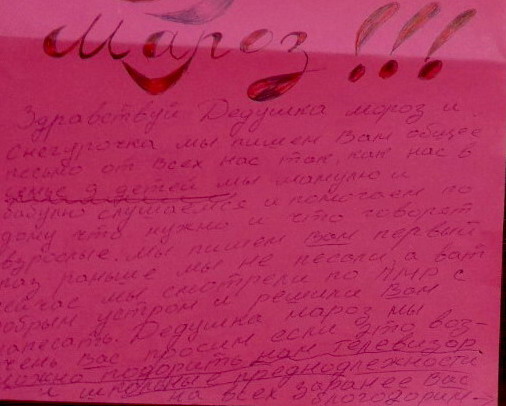 Мароз!!!
Здравствуй Дедушка мороз и
Снегурочка мы пишем Вам общее
письмо от всех нас так как нас в
семье 9 детей мы мамулю и
бабулю слушаемся и помогаем по
дому что нужно и что говорят
взрослые. Мы пишем Вам первый
раз раньше мы не песали а вот
сейчас мы смотрели по ПМР с
добрым утром и решили Вам
написать. Дедушка мороз мы
очень Вас просим если это воз-
можно подорить нам телевизор
и школьные преднодлежности
на всех заранее Вас
благодорим